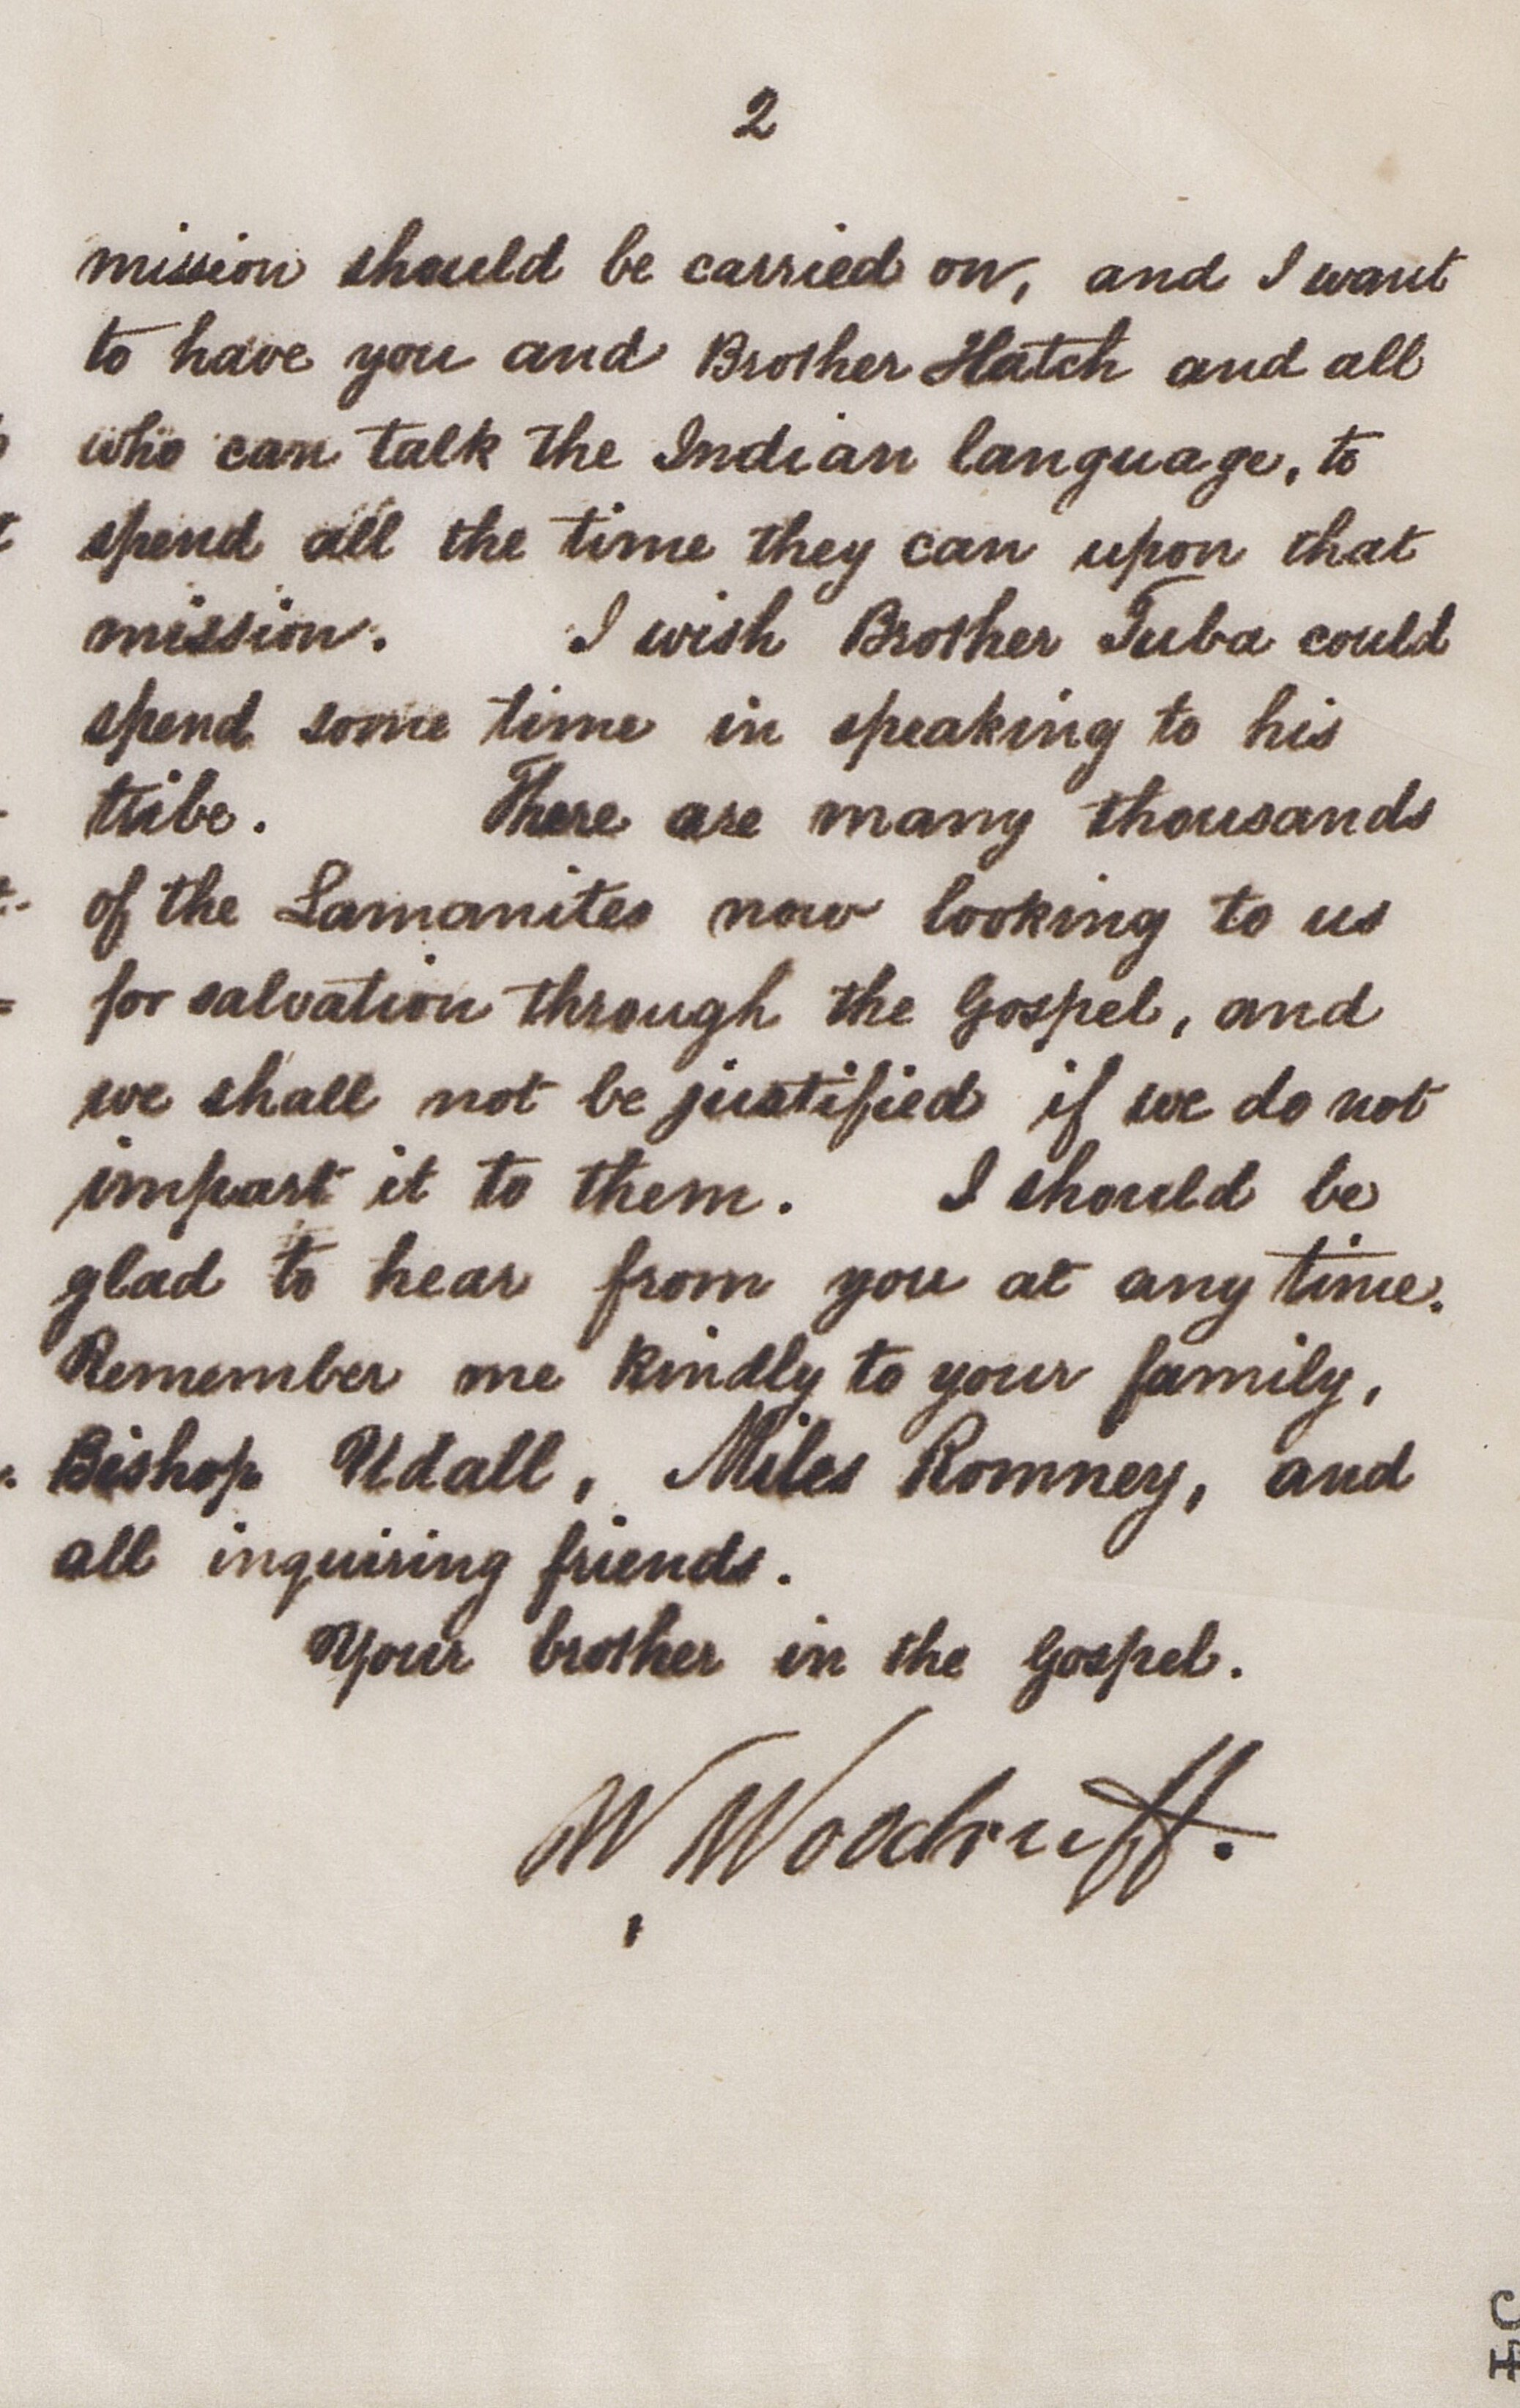 2
mission should be carried on, and I want
to have you and Brother Hatch and all
who can talk the Indian language, to
spend all the time they can upon that
mission. I wish Brother Tuba could
spend some time in speaking to his
tribe. There are many thousands
of the Lamanites now looking to us
for salvation through the Gospel, and
we shall not be justified if we do not
impart it to them. I should be
glad to hear from you at any time.
Remember me kindly to your family,
Bishop Udall, Miles Romney, and
all inquiring friends.
Your brother in the Gospel.
W. Woodruff.